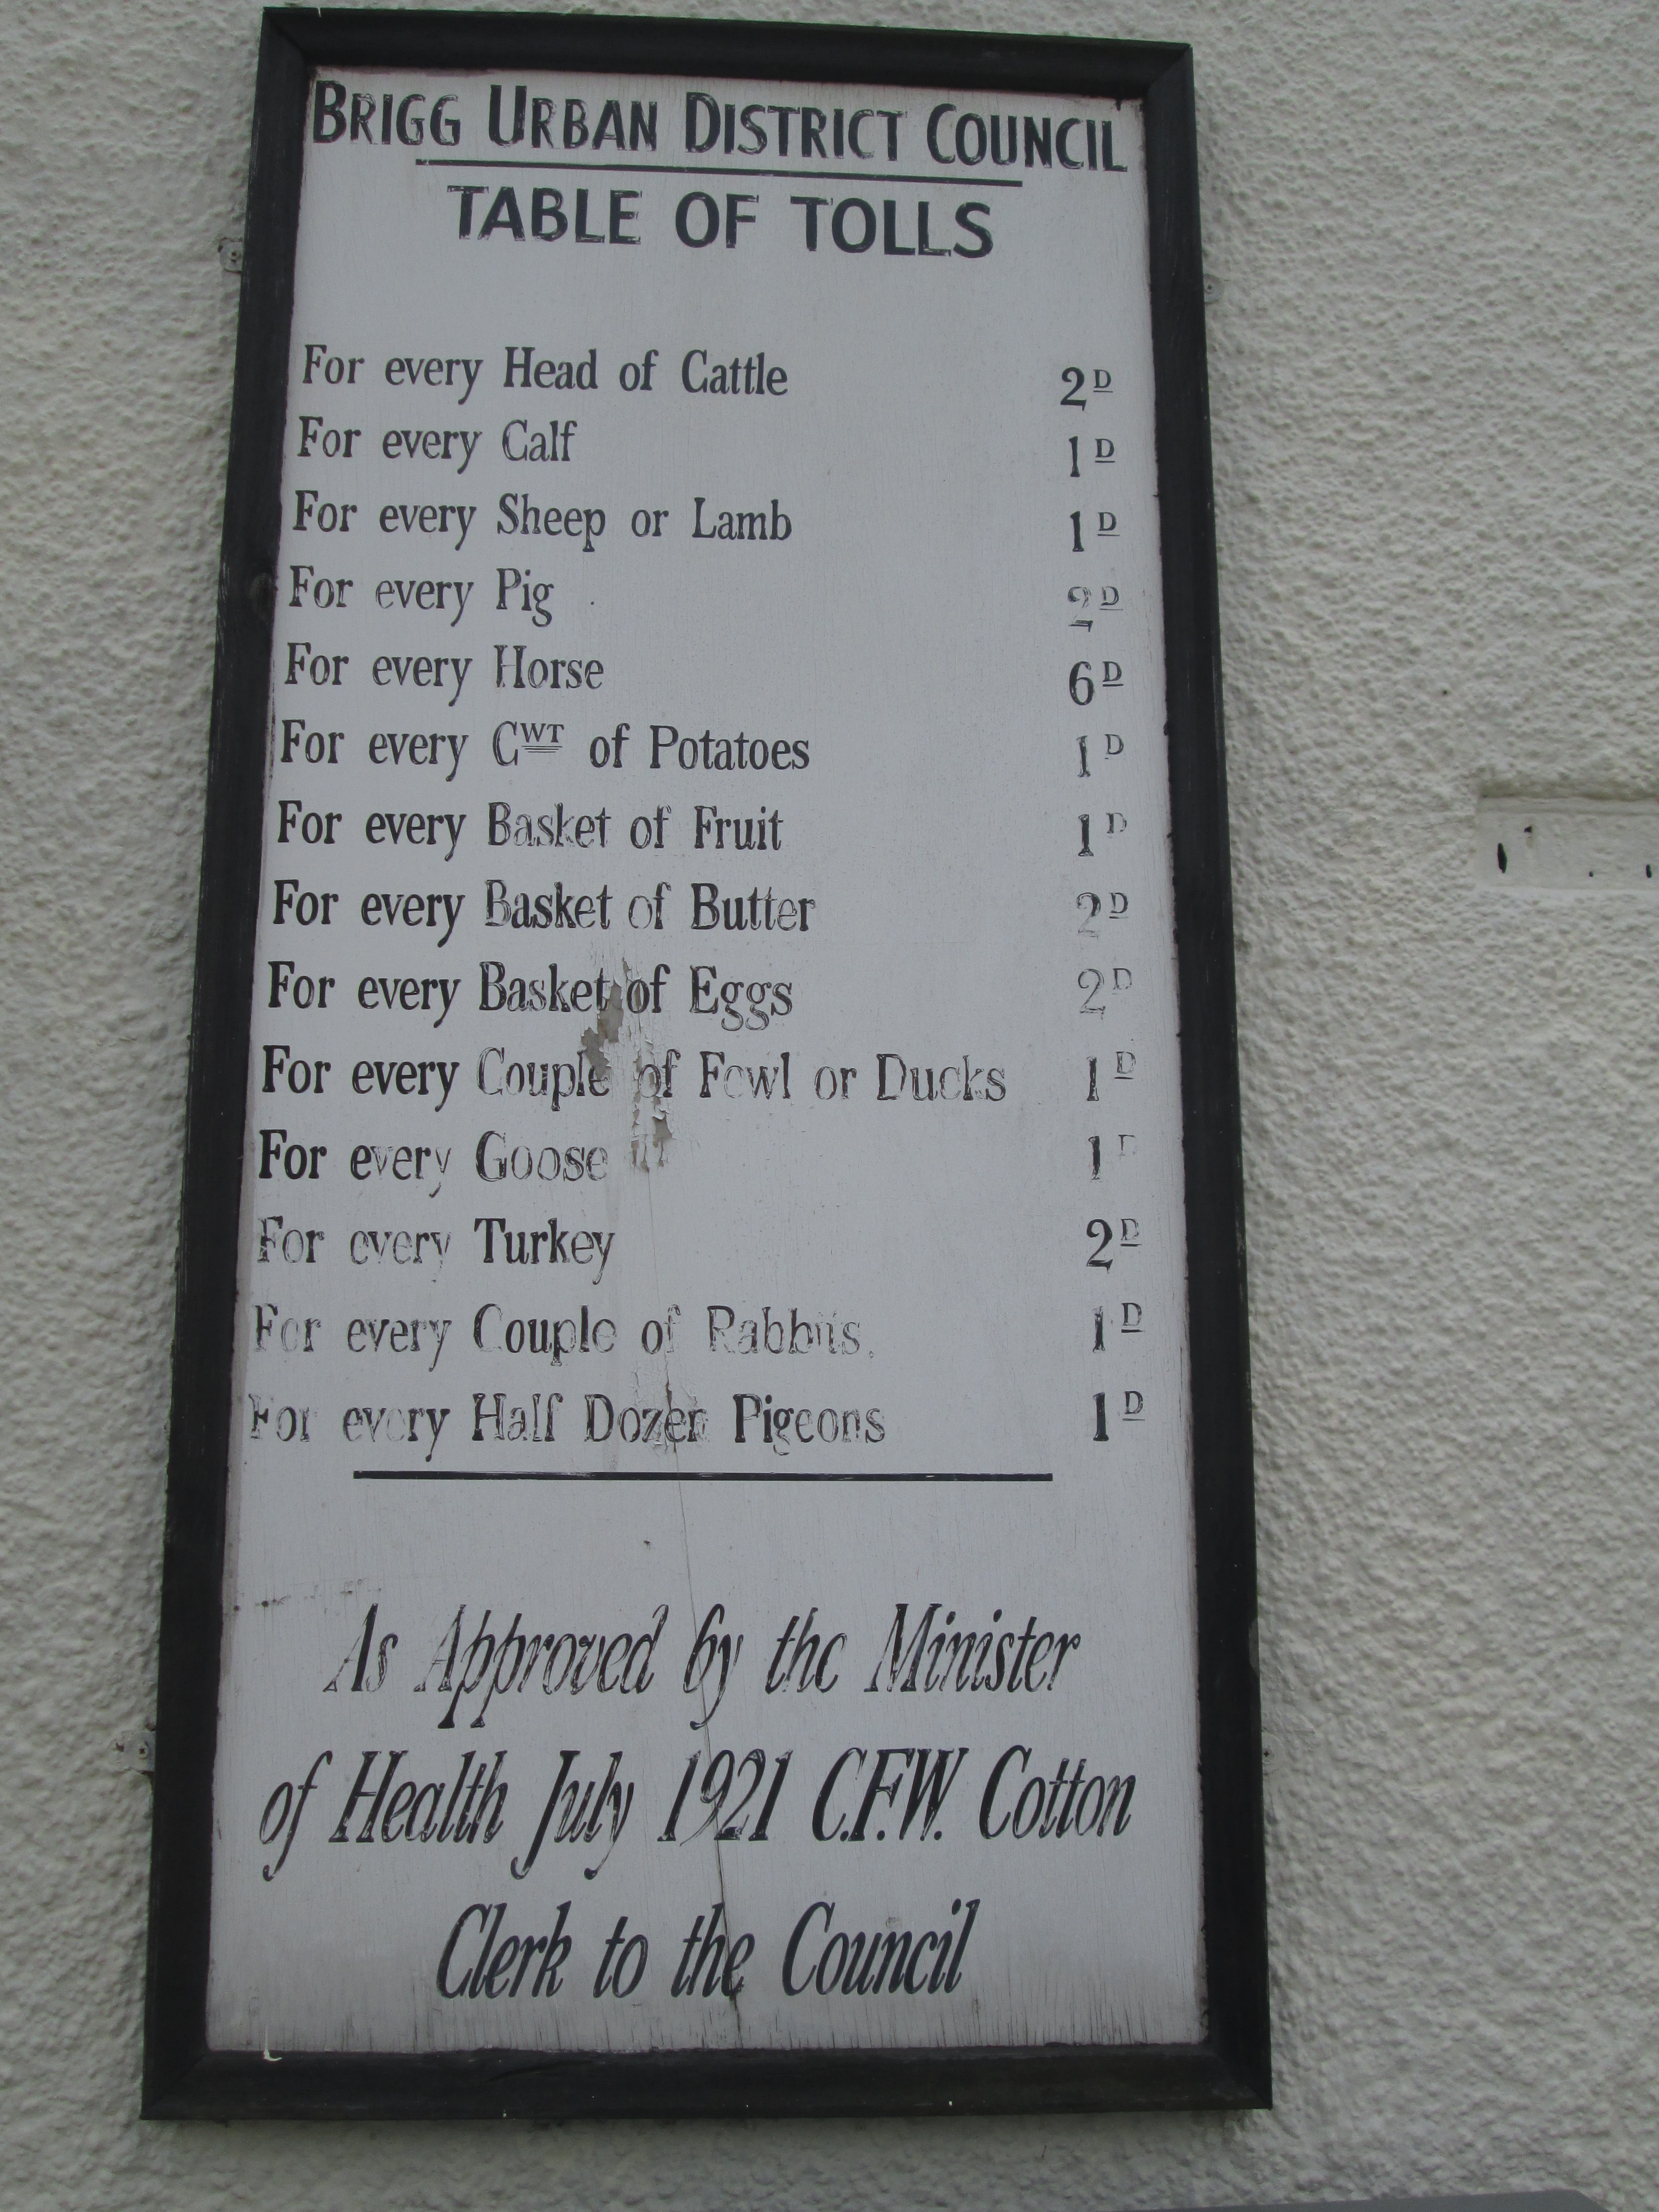 BRIGG URBAN DISTRICT COUNCIL
TABLE OF TOLLS
For every Head of Cattle 2D
For every Calf 1D
For every Sheep or Lamb 1D
For every Pig 2D
For every Horse 6D
For every CWT of Potatoes 1D
For every Basket of Fruit 1D
For every Basket of Butter 2D
For every Basket of Eggs 2D
For every Couple of Fowl or Ducks 1D
For every Goose 1D
For every Turkey 2D
For every Couple of Rabbits. 1D
For every Half Dozen Pigeons 1D
As Approved by the Minister
of Health July 1921 C.F.W. Cotton
Clerk to the Council